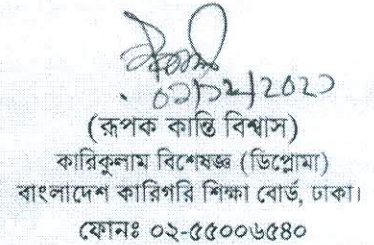 (রূপক কান্তি বিশ্বাস)
কারিকুলাম বিশেষজ্ঞ (ডিপ্লোমা)
বাংলাদেশ কারিগরি শিক্ষা বোর্ড, ঢাকা।
ফোনঃ ০২-৫৫০০৬৫৪০